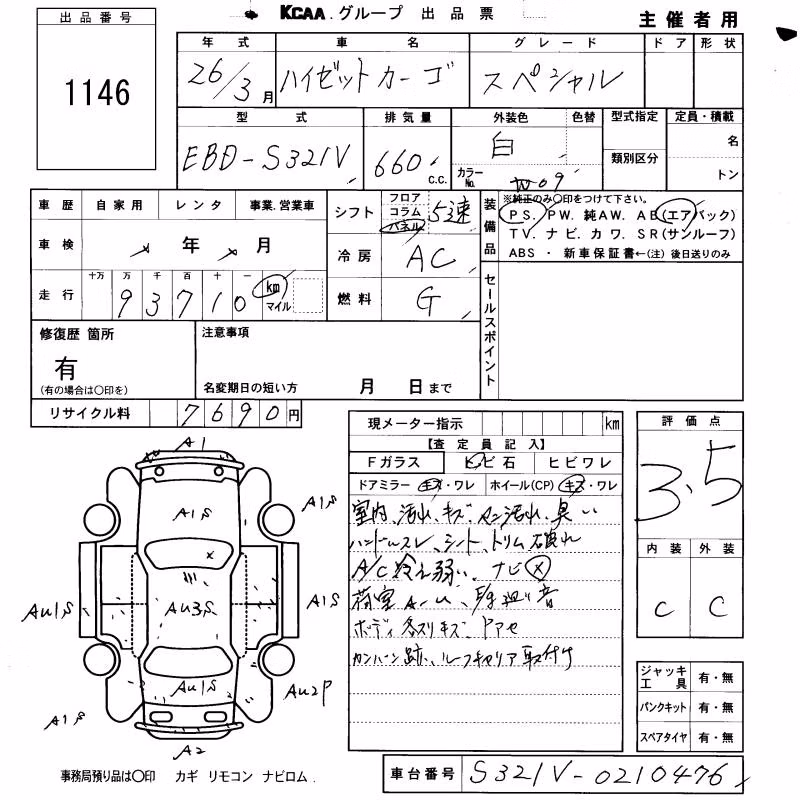 KCAA.グループ 出品票
主催者用
出品番号
1146
年式 車名 グレード ドア 形状
26/3月 ハイゼットカーゴ スペシャル
型式 排気量 外装色 色替 型式指定 定員・積載
EBD-S321V 660 c.c. 白 名
カラーNo. W09 類別区分 トン
車歴 自家用 レンタ 事業.営業車
シフト フロア コラム パネル 5速
装備品 ※純正のみ○印をつけて下さい。
PS. PW. 純AW. AB(エアバック)
TV. ナビ. カワ. SR(サンルーフ)
ABS・新車保証書←(注) 後日送りのみ
車検 年 月
冷房 AC
走行 十万 万 千 百 十 一
93710 km マイル
燃料 G
セールスポイント
修復歴 箇所
有
(有の場合は○印を)
注意事項
名変期日の短い方 月 日まで
リサイクル料 7690円
現メーター指示 km
評価点
3.5
【査定員記入】
Fガラス ヒビ石 ヒビワレ
ドアミラー キズ・ワレ ホイール(CP) キズ・ワレ
室内、汚れ、キズ、臭い
ハンドルスレ、シート、トリム破れ
A/C冷え弱い、ナビ×
荷室
ボディ各スリキズ
ルーフキャリア取付け
内装 外装
C C
A1
A1S
A1S
A1S
Au1S
Au3S
A1S
Au1S
Au2P
A1S
A2
ジャッキ工具 有・無
パンクキット 有・無
スペアタイヤ 有・無
事務局預り品は○印 カギ リモコン ナビロム.
車台番号 S321V-0210476